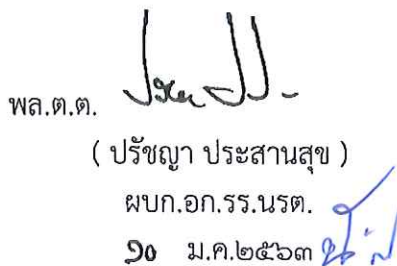 พล.ต.ต.
( ปรัชญา ประสานสุข )
ผบก.อก.รร.นรต.
๑๐ ม.ค.๒๕๖๓